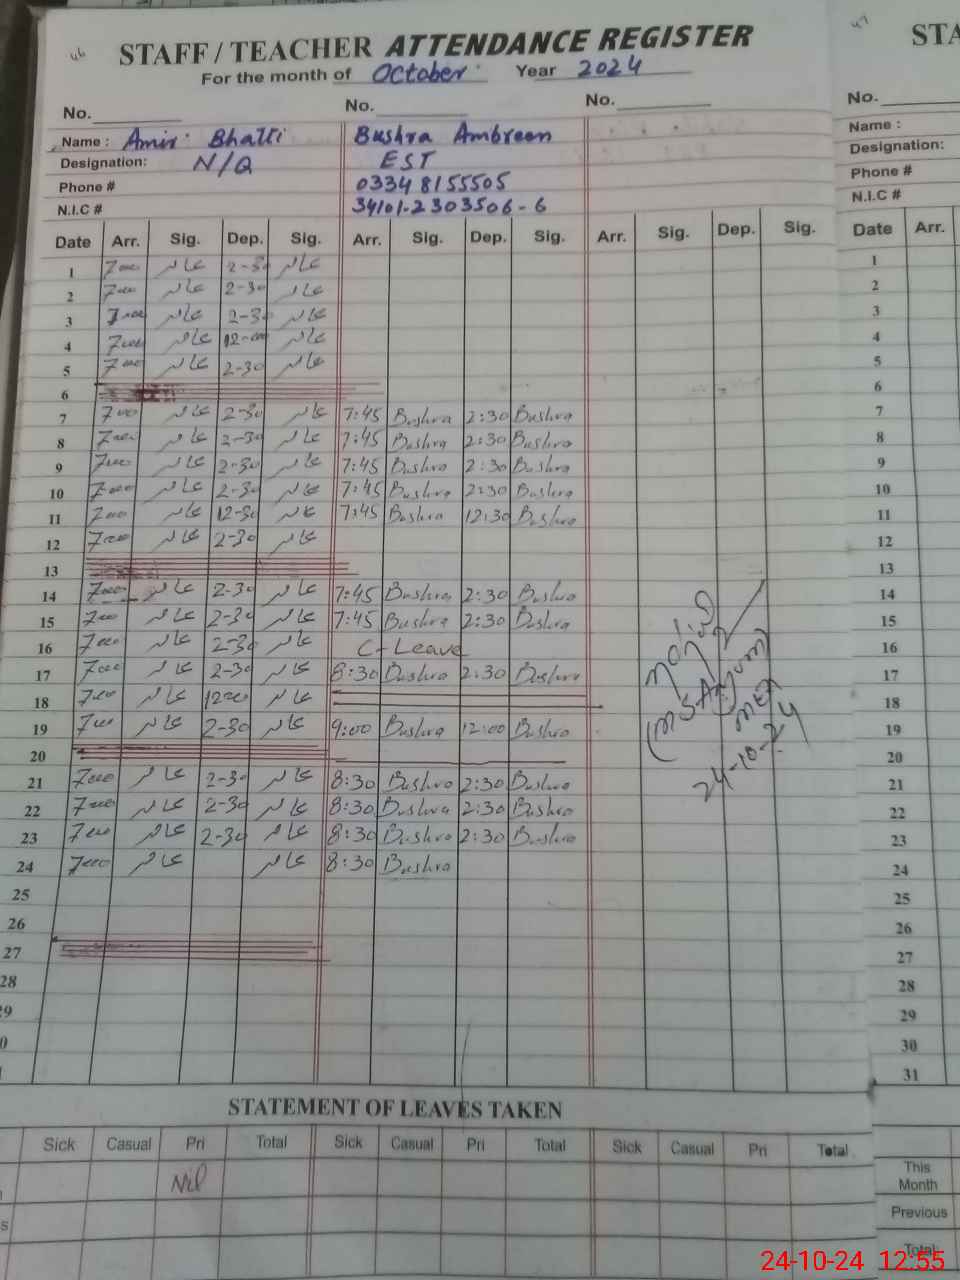 46
STAFF / TEACHER ATTENDANCE REGISTER
For the month of October Year 2024
No. No. No.
Name : Amir Bhatti Bushra Ambreen
Designation: N/Q EST
Phone # 03348155505
N.I.C # 34101-2303506-6
Date Arr. Sig. Dep. Sig. Arr. Sig. Dep. Sig. Arr. Sig. Dep. Sig.
1 7:00 عامر 2-30 عامر
2 7:00 عامر 2-30 عامر
3 7:00 عامر 2-30 عامر
4 7:00 عامر 12-00 عامر
5 7:00 عامر 2-30 عامر
6
7 7:00 عامر 2-30 عامر 7:45 Bushra 2:30 Bushra
8 7:00 عامر 2-30 عامر 7:45 Bushra 2:30 Bushra
9 7:00 عامر 2-30 عامر 7:45 Bushra 2:30 Bushra
10 7:00 عامر 2-30 عامر 7:45 Bushra 2:30 Bushra
11 7:00 عامر 12-30 عامر 7:45 Bushra 12:30 Bushra
12 7:00 عامر 2-30 عامر
13
14 7:00 عامر 2-30 عامر 7:45 Bushra 2:30 Bushra
15 7:00 عامر 2-30 عامر 7:45 Bushra 2:30 Bushra
16 7:00 عامر 2-30 عامر C-Leave
17 7:00 عامر 2-30 عامر 8:30 Bushra 2:30 Bushra
18 7:00 عامر 12-00 عامر
19 7:00 عامر 2-30 عامر 9:00 Bushra 12:00 Bushra
20
21 7:00 عامر 2-30 عامر 8:30 Bushra 2:30 Bushra
22 7:00 عامر 2-30 عامر 8:30 Bushra 2:30 Bushra
23 7:00 عامر 2-30 عامر 8:30 Bushra 2:30 Bushra
24 7:00 عامر عامر 8:30 Bushra
25
26
27
28
29
0
MEA
24-10-24
STATEMENT OF LEAVES TAKEN
Sick Casual Pri Total Sick Casual Pri Total Sick Casual Pri Total
Nil
47
STA
No.
Name :
Designation:
Phone #
N.I.C #
Date Arr.
1
2
3
4
5
6
7
8
9
10
11
12
13
14
15
16
17
18
19
20
21
22
23
24
25
26
27
28
29
30
31
This
Month
Previous
Total
24-10-24 12:55